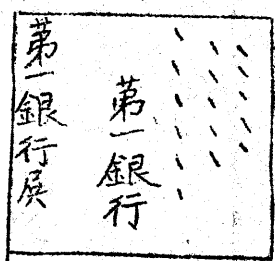 第一銀行
第一銀行展